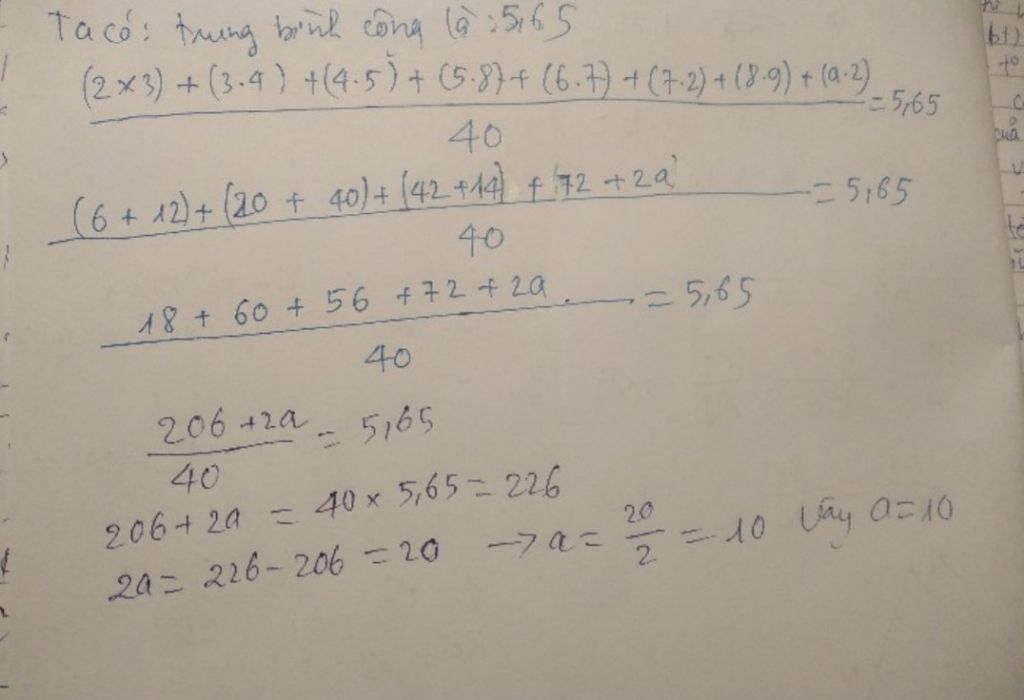 Ta có: trung bình cộng là: 5,65
(2×3) + (3.4) + (4.5) + (5.8) + (6.7) + (7.2) + (8.9) + (a.2) = 5,65
40
(6 + 12) + (20 + 40) + (42 + 14) + 72 + 2a = 5,65
40
18 + 60 + 56 + 72 + 2a = 5,65
40
206 + 2a = 5,65
40
206 + 2a = 40 × 5,65 = 226
2a = 226 - 206 = 20 → a = 20/2 = 10 Vậy a = 10